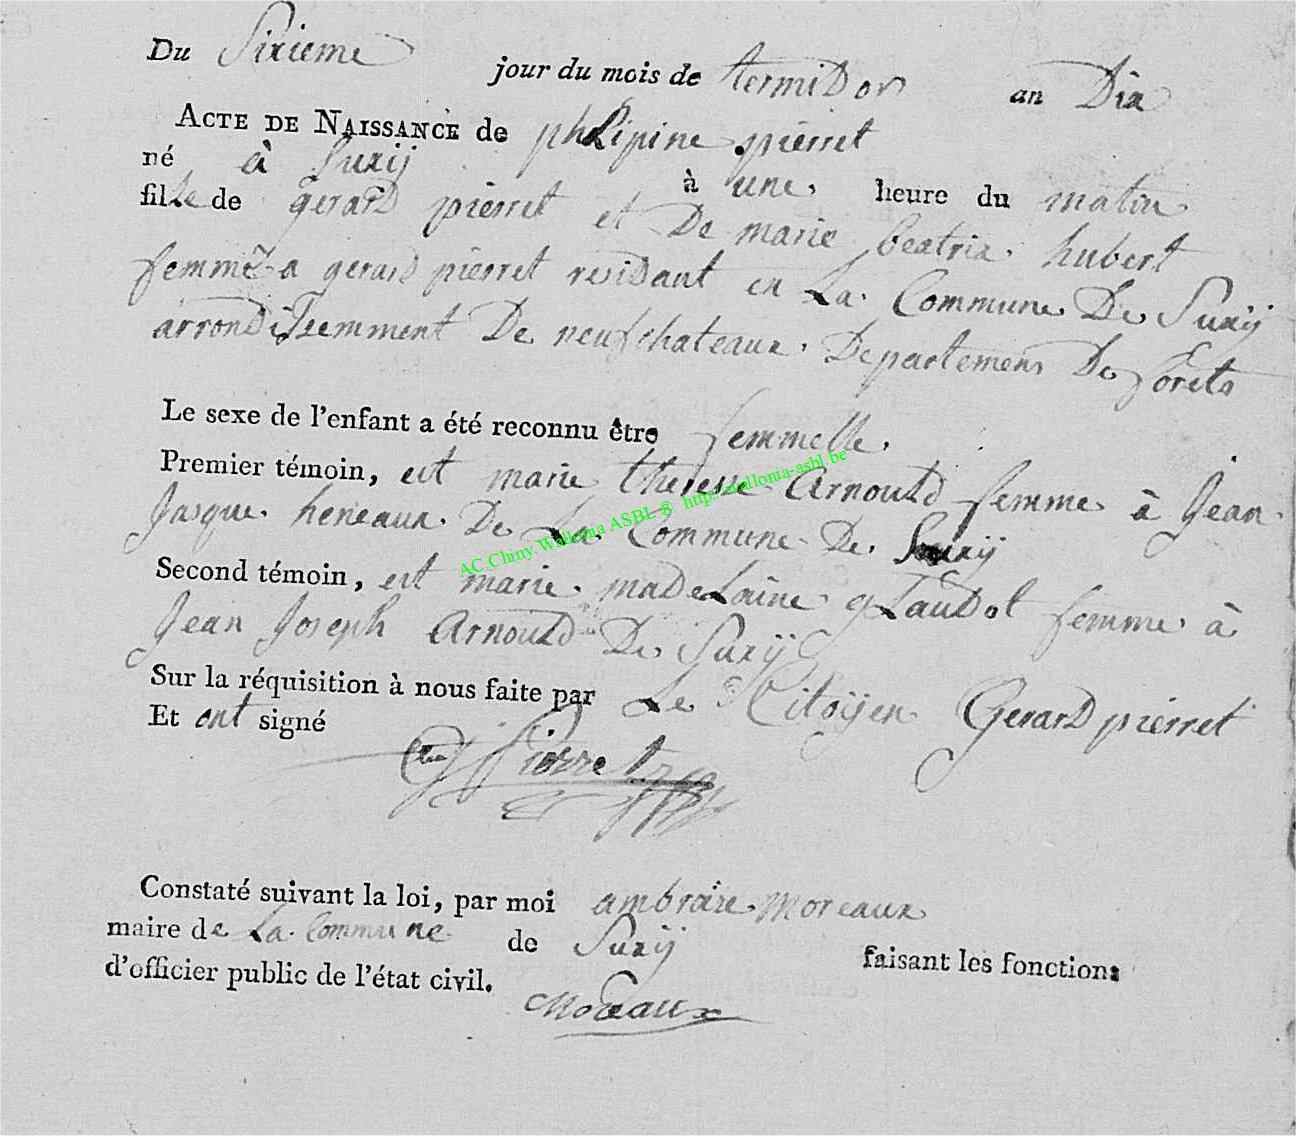 Du Sixieme jour du mois de termidor an Dix
ACTE DE NAISSANCE de philipine pierret
né à Suxÿ à une heure du matin
fille de gerard pierret et De marie beatrix hubert
femme a gerard pierret residant en La Commune De Suxÿ
arrondissemment De neufchateaux Departement De forets
Le sexe de l'enfant a été reconnu être femmelle.
Premier témoin, est marie therese Arnould femme à Jean
Jasque heneaux De La Commune De Suxÿ
Second témoin, est marie madelaine glaudot femme à
Jean Joseph Arnould De Suxÿ
Sur la réquisition à nous faite par Le Citoÿen Gerard pierret
Et ont signé
Pierret
Constaté suivant la loi, par moi ambroise moreaux
maire de La Commune de Suxÿ faisant les fonctions
d'officier public de l'état civil.
Moreaux
AC Chiny Wallonia ASBL ® http://wallonia-asbl.be